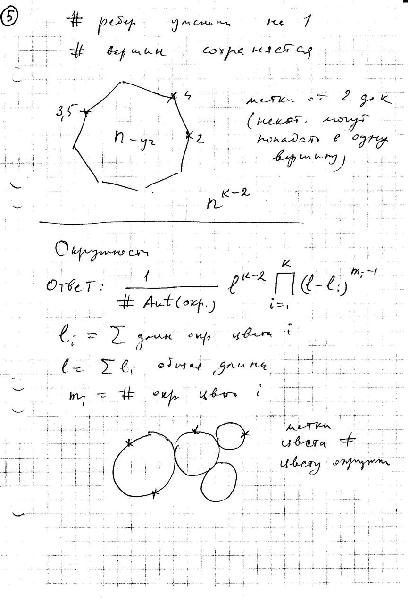 5
# ребер уменьш на 1
# вершин сохраняется
3,5
4
2
n-уг
метки от 2 до k
(некот. могут
попадать в одну
вершину)
n^{k-2}
Окружности
Ответ: \frac{1}{# Aut(окр.)} l^{k-2} \prod_{i=1}^{k} (l-l_i)^{m_i-1}
l_i = Σ длин окр цвета i
l = Σ l_i общая длина
m_i = # окр цвета i
метки
цвета ≠
цвету окружн